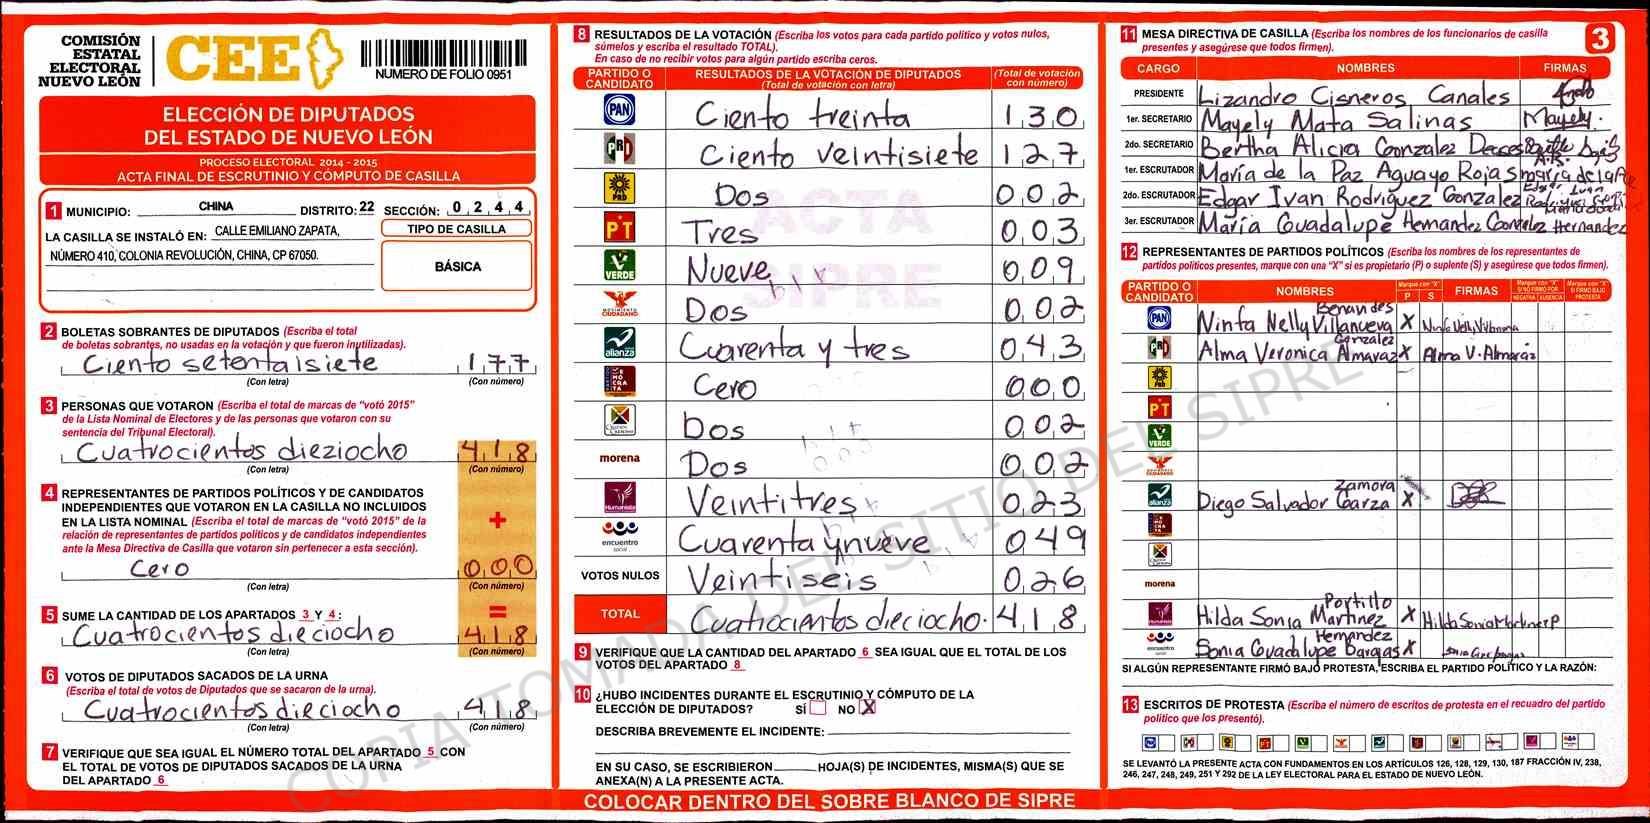 COMISIÓN
ESTATAL
ELECTORAL
NUEVO LEÓN
CEE
NUMERO DE FOLIO 0951
ELECCIÓN DE DIPUTADOS
DEL ESTADO DE NUEVO LEÓN
PROCESO ELECTORAL 2014 - 2015
ACTA FINAL DE ESCRUTINIO Y CÓMPUTO DE CASILLA
1 MUNICIPIO: CHINA DISTRITO: 22 SECCIÓN: 0 2 4 4
LA CASILLA SE INSTALÓ EN: CALLE EMILIANO ZAPATA,
NÚMERO 410, COLONIA REVOLUCIÓN, CHINA, CP 67050.
TIPO DE CASILLA
BÁSICA
2 BOLETAS SOBRANTES DE DIPUTADOS (Escriba el total
de boletas sobrantes, no usadas en la votación y que fueron inutilizadas).
Ciento setentaisiete 1 7 7
(Con letra) (Con número)
3 PERSONAS QUE VOTARON (Escriba el total de marcas de “votó 2015”
de la Lista Nominal de Electores y de las personas que votaron con su
sentencia del Tribunal Electoral).
Cuatrocientos dieziocho 4 1 8
(Con letra) (Con número)
4 REPRESENTANTES DE PARTIDOS POLÍTICOS Y DE CANDIDATOS
INDEPENDIENTES QUE VOTARON EN LA CASILLA NO INCLUIDOS
EN LA LISTA NOMINAL (Escriba el total de marcas de “votó 2015” de la
relación de representantes de partidos políticos y de candidatos independientes
ante la Mesa Directiva de Casilla que votaron sin pertenecer a esta sección).
+
Cero 0 0 0
(Con letra) (Con número)
=
5 SUME LA CANTIDAD DE LOS APARTADOS 3 Y 4:
Cuatrocientos dieciocho 4 1 8
(Con letra) (Con número)
6 VOTOS DE DIPUTADOS SACADOS DE LA URNA
(Escriba el total de votos de Diputados que se sacaron de la urna).
Cuatrocientos dieciocho 4 1 8
(Con letra) (Con número)
7 VERIFIQUE QUE SEA IGUAL EL NÚMERO TOTAL DEL APARTADO 5 CON
EL TOTAL DE VOTOS DE DIPUTADOS SACADOS DE LA URNA
DEL APARTADO 6
8 RESULTADOS DE LA VOTACIÓN (Escriba los votos para cada partido político y votos nulos,
súmelos y escriba el resultado TOTAL).
En caso de no recibir votos para algún partido escriba ceros.
PARTIDO O CANDIDATO RESULTADOS DE LA VOTACIÓN DE DIPUTADOS (Total de votación con letra) (Total de votación con número)
PAN Ciento treinta 1 3 0
PRD Ciento veintisiete 1 2 7
PRD Dos 0 0 2
PT Tres 0 0 3
VERDE Nueve 0 0 9
MOVIMIENTO CIUDADANO Dos 0 0 2
alianza Cuarenta y tres 0 4 3
Cero 0 0 0
Dos 0 0 2
morena Dos 0 0 2
Humanista Veintitres 0 2 3
encuentro social Cuarenta ynueve 0 4 9
VOTOS NULOS Veintiseis 0 2 6
TOTAL Cuatrocientos dieciocho. 4 1 8
ACTA
SIPRE
9 VERIFIQUE QUE LA CANTIDAD DEL APARTADO 6 SEA IGUAL QUE EL TOTAL DE LOS
VOTOS DEL APARTADO 8
10 ¿HUBO INCIDENTES DURANTE EL ESCRUTINIO Y CÓMPUTO DE LA
ELECCIÓN DE DIPUTADOS? SÍ NO X
DESCRIBA BREVEMENTE EL INCIDENTE:
EN SU CASO, SE ESCRIBIERON HOJA(S) DE INCIDENTES, MISMA(S) QUE SE
ANEXA(N) A LA PRESENTE ACTA.
COLOCAR DENTRO DEL SOBRE BLANCO DE SIPRE
11 MESA DIRECTIVA DE CASILLA (Escriba los nombres de los funcionarios de casilla
presentes y asegúrese que todos firmen).
3
CARGO NOMBRES FIRMAS
PRESIDENTE Lizandro Cisneros Canales
1er. SECRETARIO Mayely Mata Salinas Mayely.
2do. SECRETARIO Bertha Alicia Gonzalez
1er. ESCRUTADOR María de la Paz Aguayo Rojas maria de la
2do. ESCRUTADOR Edgar Ivan Rodriguez Gonzalez Edgar Ivan
3er. ESCRUTADOR María Guadalupe Hernandez Gonzalez Hernandez
12 REPRESENTANTES DE PARTIDOS POLÍTICOS (Escriba los nombres de los representantes de
partidos políticos presentes, marque con una “X” si es propietario (P) o suplente (S) y asegúrese que todos firmen).
PARTIDO O CANDIDATO NOMBRES Marque con “X” P S FIRMAS Marque con “X” SI NO FIRMÓ POR NEGATIVA AUSENCIA Marque con “X” SI FIRMÓ BAJO PROTESTA
PAN Ninfa Nelly Villanueva Benavides X Ninfa Nelly Villanueva
Alma Veronica Almaraz Gonzalez X Alma V. Almaráz
PRD
PT
VERDE
alianza Diego Salvador Garza Zamora X
morena
Hilda Sonia Martinez Portillo X Hilda Sonia Martinez P
encuentro social Sonia Guadalupe Bargas Hernandez X
SI ALGÚN REPRESENTANTE FIRMÓ BAJO PROTESTA, ESCRIBA EL PARTIDO POLÍTICO Y LA RAZÓN:
13 ESCRITOS DE PROTESTA (Escriba el número de escritos de protesta en el recuadro del partido
político que los presentó).
SE LEVANTÓ LA PRESENTE ACTA CON FUNDAMENTOS EN LOS ARTÍCULOS 126, 128, 129, 130, 187 FRACCIÓN IV, 238,
246, 247, 248, 249, 251 Y 292 DE LA LEY ELECTORAL PARA EL ESTADO DE NUEVO LEÓN.
COPIA TOMADA DEL SITIO DEL SIPRE